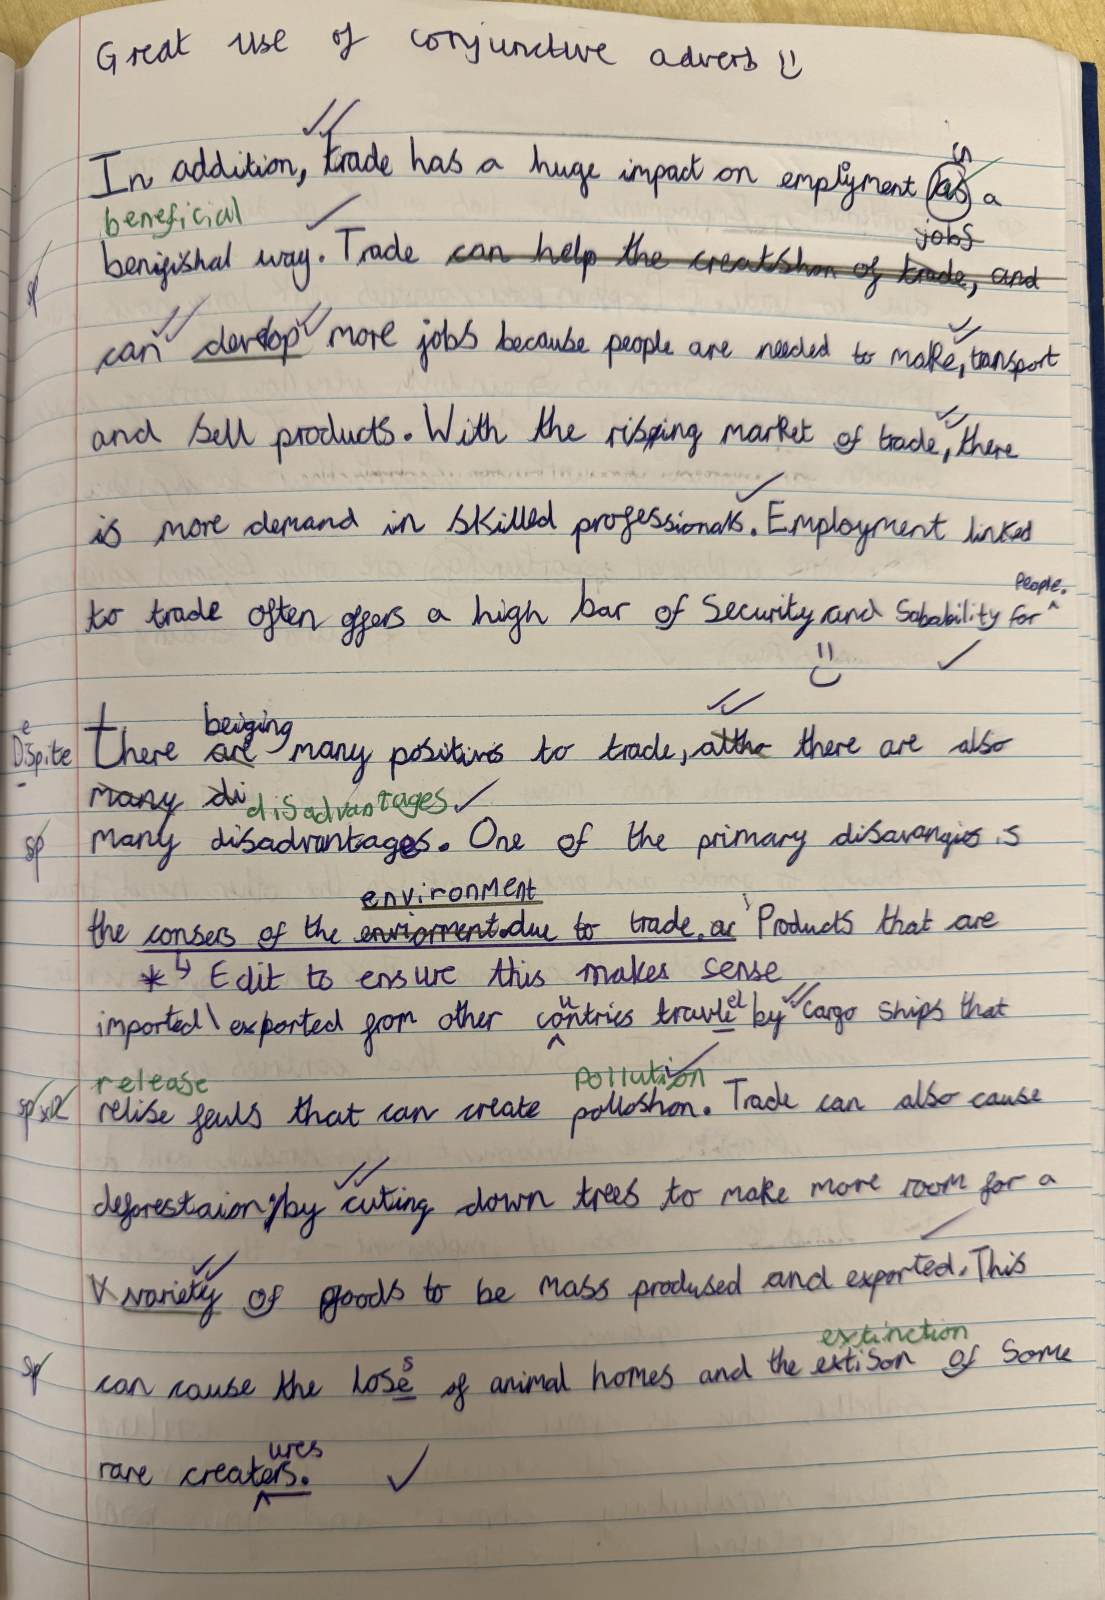 Great use of conjunctive adverb
in
In addition, trade has a huge impact on emplyment as a
beneficial
jobs
sp benifishal way. Trade can help the creatshon of trade, and
can develop more jobs because people are needed to make, transport
and sell products. With the rising market of trade, there
is more demand in skilled professionals. Employment linked
People.
to trade often offers a high bar of security and Sabability for ^
e
Dispite there are beiging many positivis to trade, altho there are also
many di disadvantages
sp many disadvantages. One of the primary disavangies is
environment
the consers of the enviorment.due to trade. as Products that are
* Edit to ensure this makes sense
u el
imported\exported from other contries travle by cargo ships that
release pollution
sp x2 relise feuls that can create polloshon. Trade can also cause
deforestaion by cuting down trees to make more room for a
variety of goods to be mass prodused and exported. This
extinction
s
sp can cause the lose of animal homes and the extison of some
ures
rare creaters.